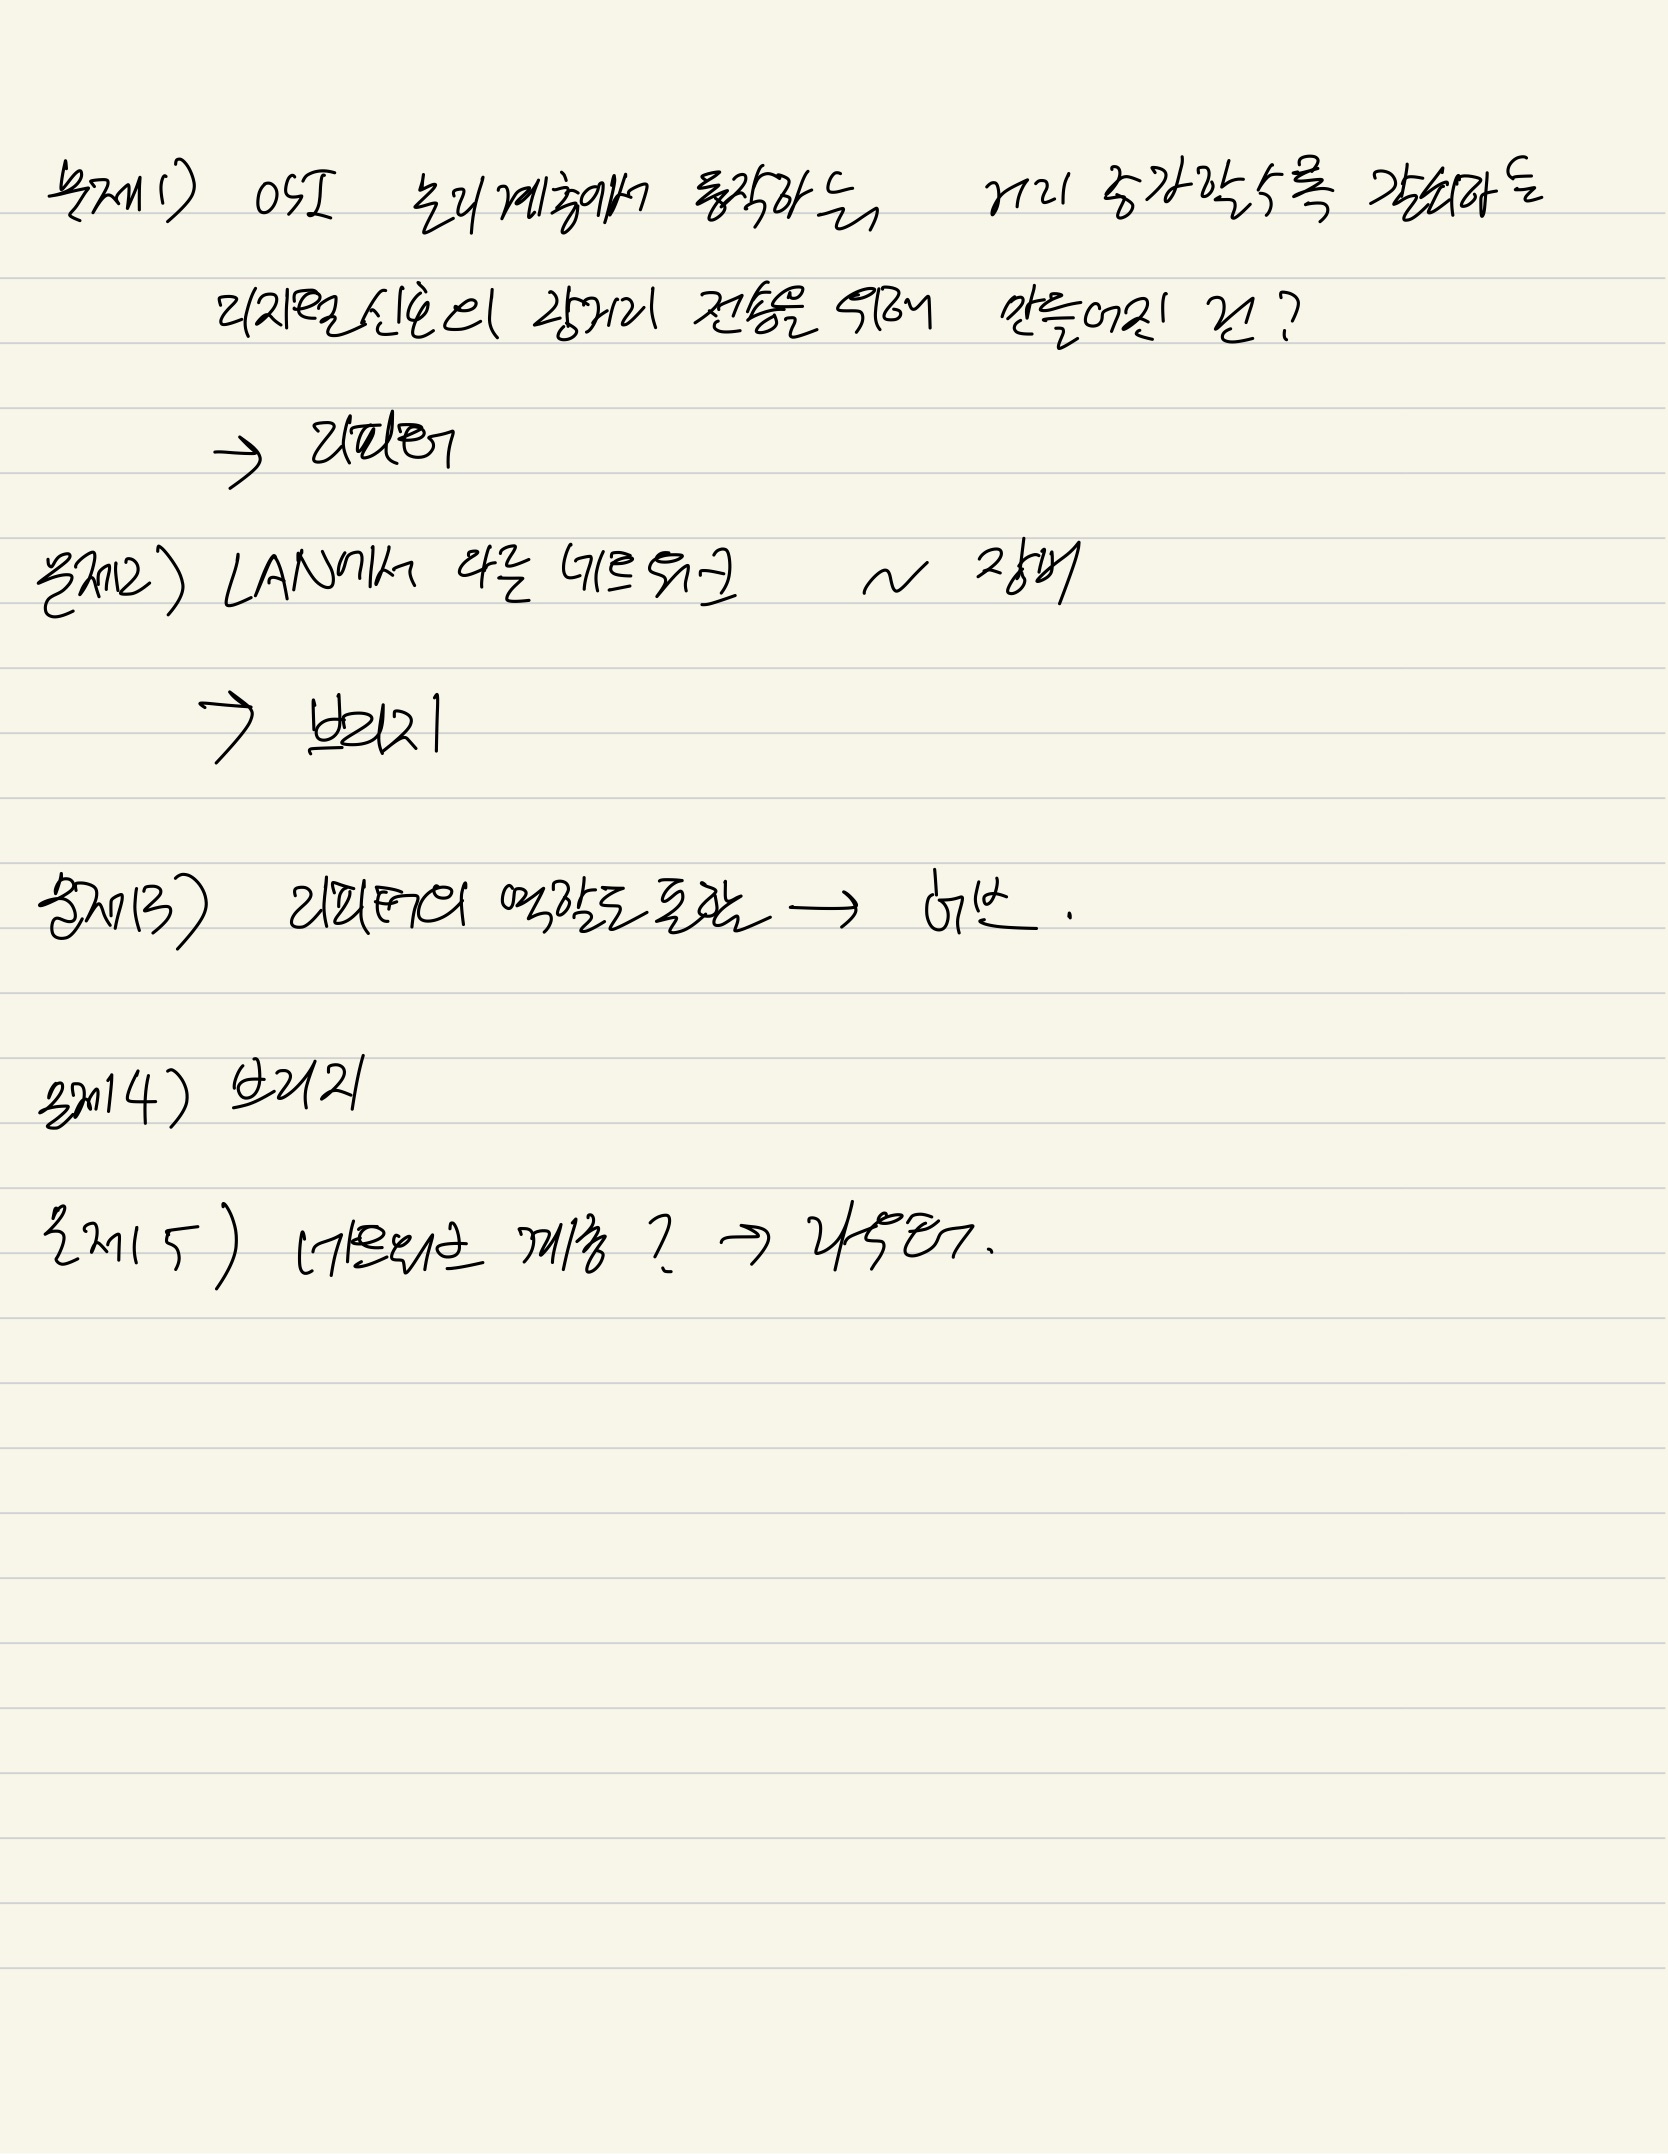 문제1) OSI 논리계층에서 동작하는, 거리 증가할수록 감쇠하는
디지털 신호의 장거리 전송을 위해 만들어진 건?
→ 리피터
문제2) LAN에서 다른 네트워크 ~ 장비
→ 브리지
문제3) 리피터의 역할도 포함 → 허브.
문제4) 브리지
문제5) 네트워크 계층? → 라우터.